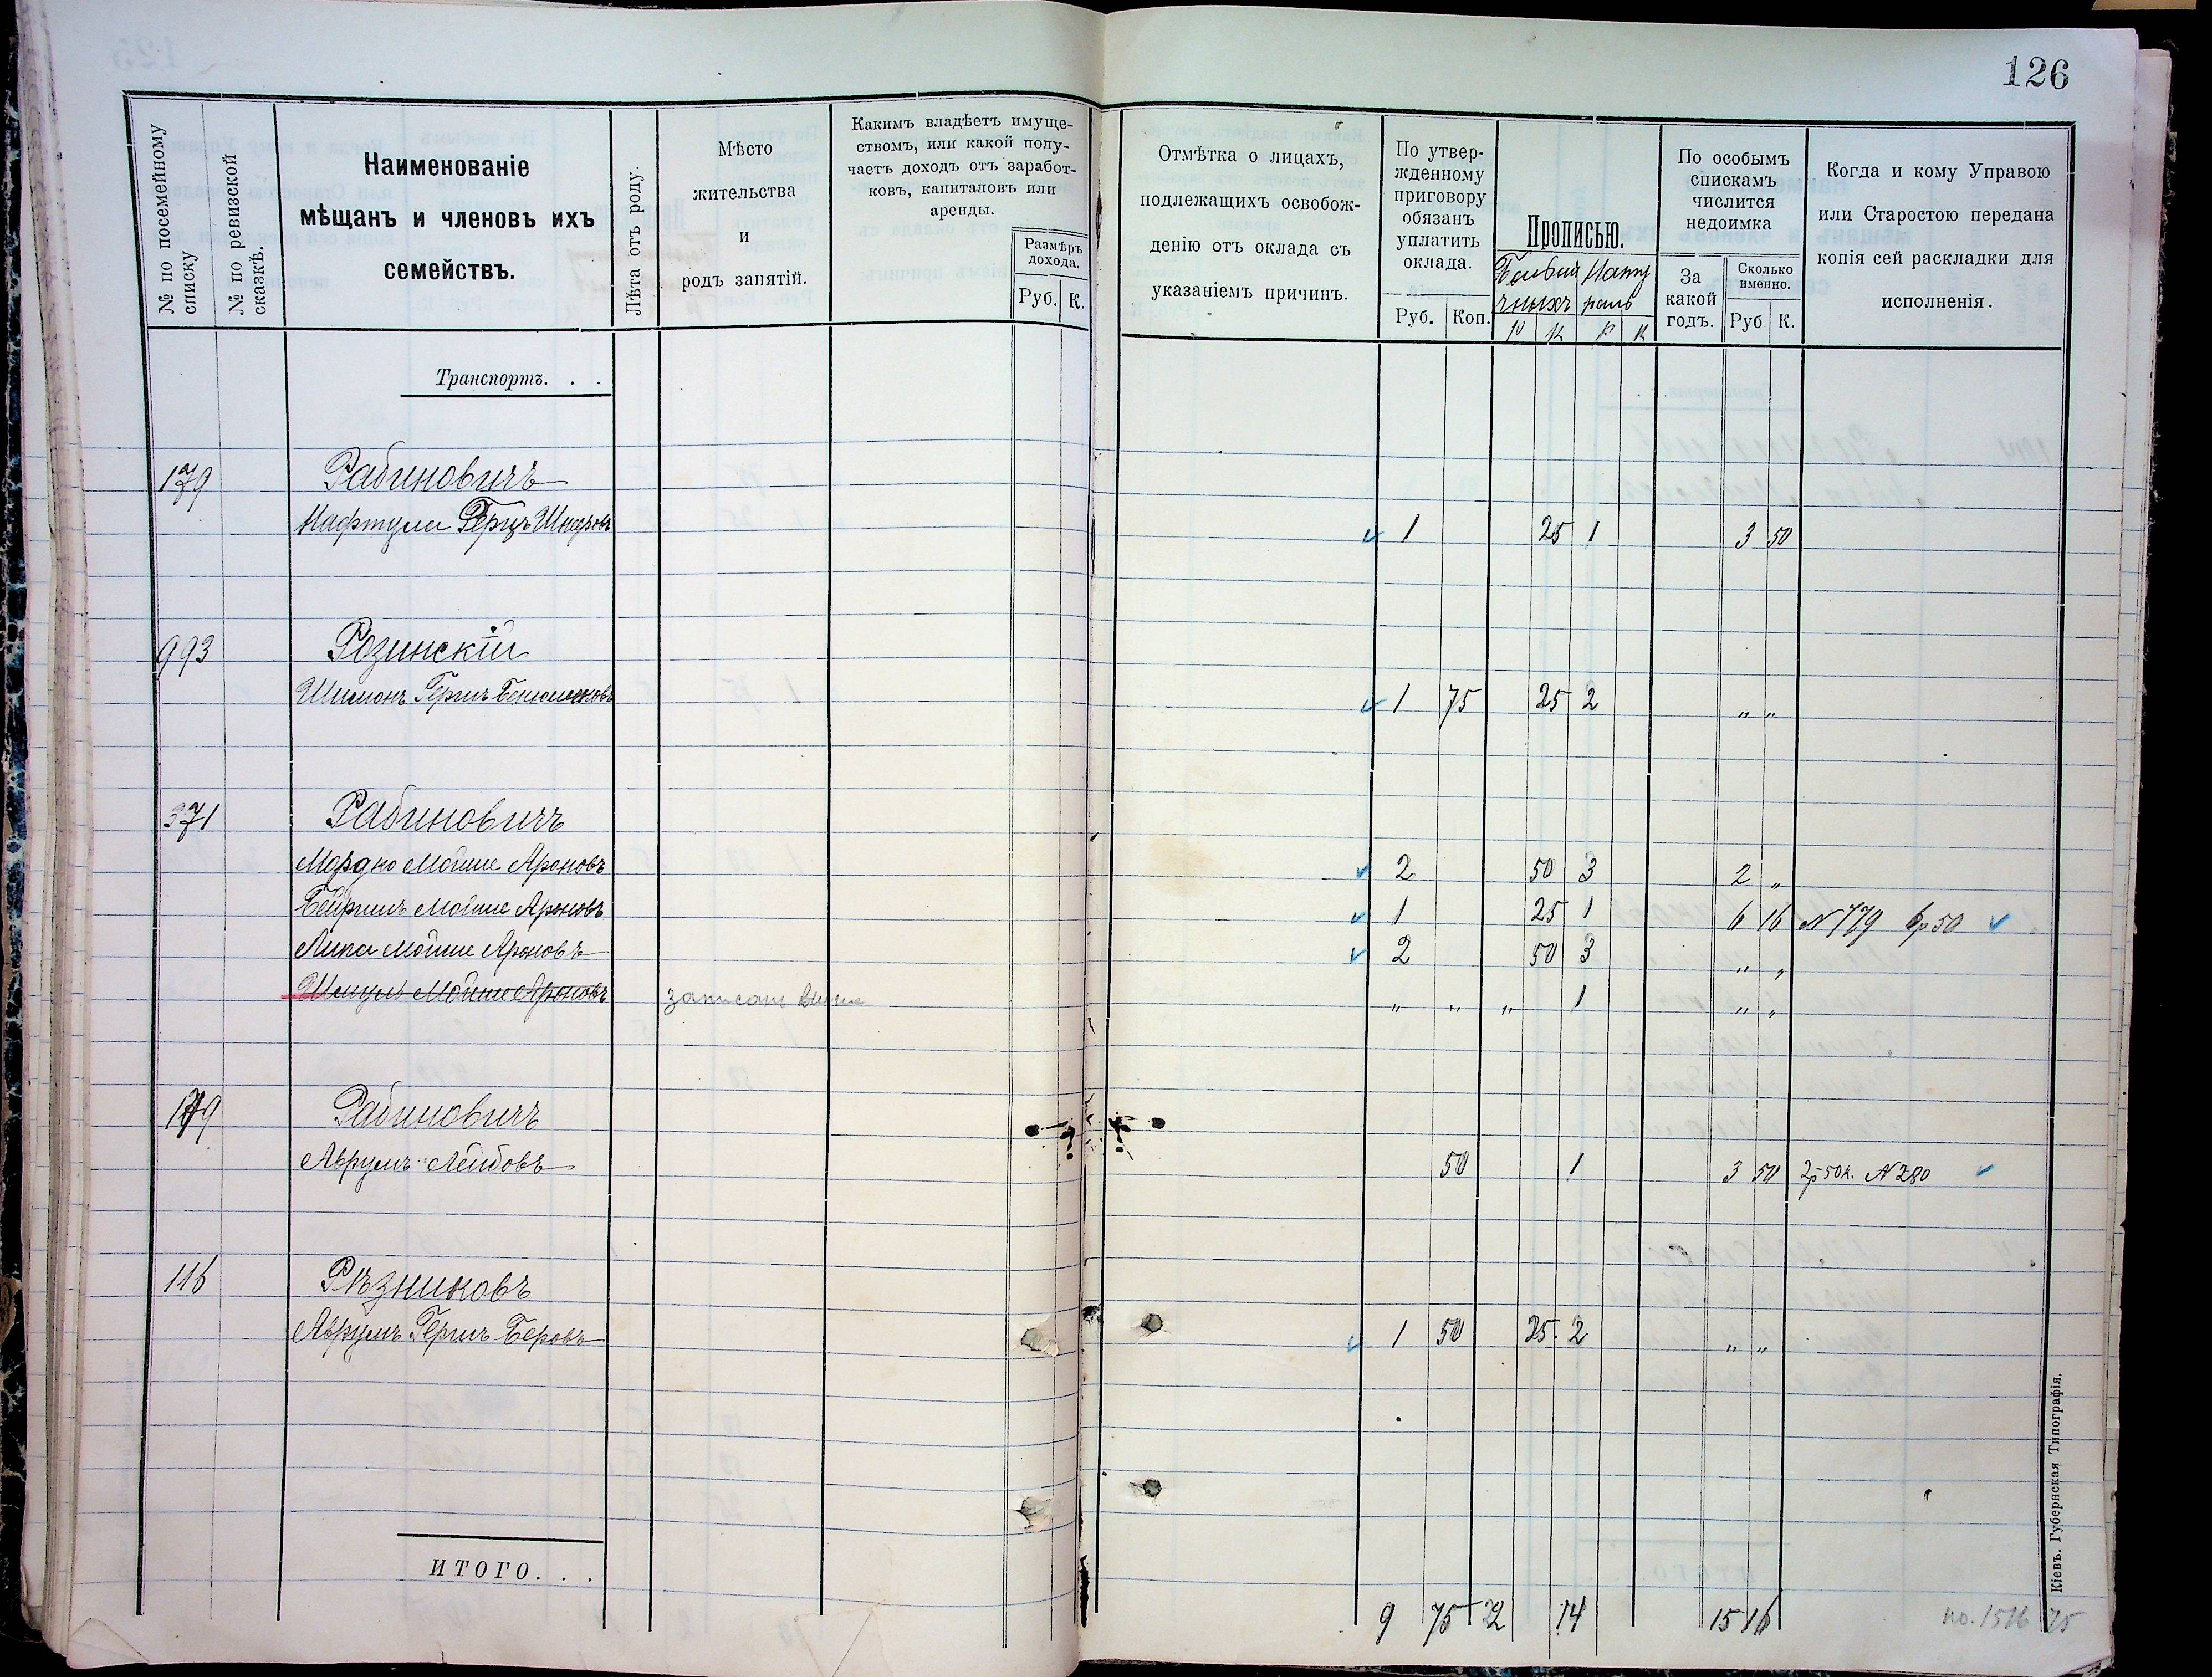 126
№ по посемейному списку
№ по ревизской сказкѣ.
Наименованіе
мѣщанъ и членовъ ихъ
семействъ.
Лѣта отъ роду.
Мѣсто
жительства
и
родъ занятій.
Какимъ владѣетъ имуще-
ствомъ, или какой полу-
чаетъ доходъ отъ заработ-
ковъ, капиталовъ или
аренды.
Размѣръ
дохода.
Руб. К.
Отмѣтка о лицахъ,
подлежащихъ освобож-
денію отъ оклада съ
указаніемъ причинъ.
По утвер-
жденному
приговору
обязанъ
уплатить
оклада.
Руб. Коп.
Прописью.
Р К Р К
По особымъ
спискамъ
числится
недоимка
За
какой
годъ.
Сколько
именно.
Руб К.
Когда и кому Управою
или Старостою передана
копія сей раскладки для
исполненія.
Транспортъ. . .
179 Рабиновичъ
Нафтули Герцъ 1 25 1 3 50
993 Розинскій
Шимонъ Гершъ 1 75 25 2 " "
371 Рабиновичъ
Мордко Мойше Ароновъ 2 50 3 2 "
Бейришъ Мойше Ароновъ 1 25 1 6 16 N 779 6р50
Липа Мойше Ароновъ 2 50 3 " "
Шмуль Мойше Ароновъ записанъ выше " " " 1 " "
Рабиновичъ
Аврумъ Лейбовъ 50 1 3 50 2р50к. N 280
116 Рѣзниковъ
Аврумъ Гершъ Беровъ 1 50 25 2 " "
ИТОГО. . .
9 75 2 14 15 16
по. 1516 75
Кіевъ. Губернская Типографія.